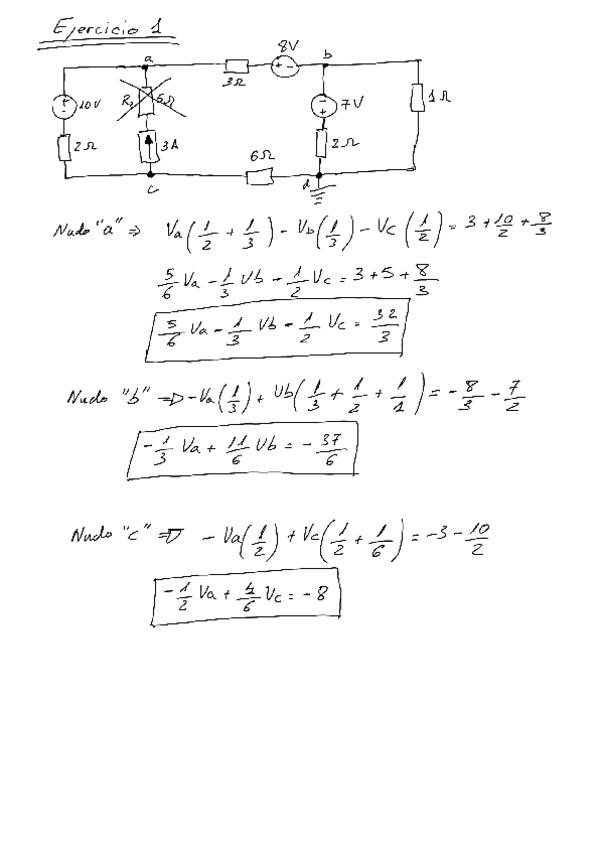 Ejercicio 1
a 8V b
+ - 3Ω
10V R₁ 5Ω 7V 1Ω
2Ω 3A 2Ω
6Ω
c d
Nudo "a" ⇒ Va(1/2 + 1/3) - Vb(1/3) - Vc(1/2) = 3 + 10/2 + 8/3
5/6 Va - 1/3 Vb - 1/2 Vc = 3 + 5 + 8/3
5/6 Va - 1/3 Vb - 1/2 Vc = 32/3
Nudo "b" ⇒ -Va(1/3) + Vb(1/3 + 1/2 + 1/1) = -8/3 - 7/2
-1/3 Va + 11/6 Vb = -37/6
Nudo "c" ⇒ -Va(1/2) + Vc(1/2 + 1/6) = -3 - 10/2
-1/2 Va + 4/6 Vc = -8